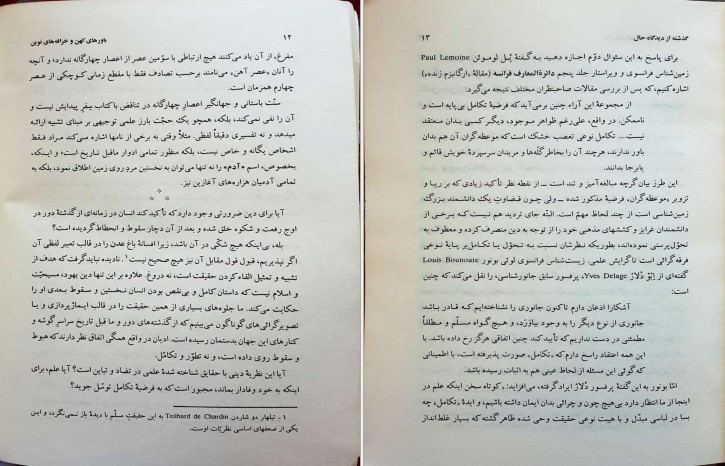 ۱۲ باورهای کهن و خرافه‌های نوین
مفرغ، از آن یاد می‌کنند هیچ ارتباطی با سوّمین عصر از اعصار چهارگانه ندارد؛ و آنچه
را آنان «عصر آهن» می‌نامند برحسب تصادف فقط با مقطع زمانی کوچکی از عصر
چهارم همزمان است.
سنّت باستانی و جهانگیر اعصار چهارگانه در تناقض با کتاب سِفرِ پیدایش نیست و
آن را نفی نمی‌کند، بلکه، همچو یک حجّت بارز علمی توجیهی بر مبنای تشبیه ارائه
میدهد و نه تفسیری دقیقاً لفظی. مثلاً وقتی به برخی از نامها اشاره می‌کند مراد فقط
اشخاص یگانه و خاص نیست، بلکه منظور تمامی ادوار ماقبل تاریخ است؛ و اینکه،
بخصوص، اسم «آدم» را نه تنها می‌توان به نخستین مردِ روی زمین اطلاق نمود، بلکه به
تمامی آدمیان هزاره‌های آغازین نیز.
*
* *
آیا برای دین ضرورتی وجود دارد که تأکید کند انسان در زمانه‌ای از گذشتهٔ دور در
اوج رفعت و شکوه خلق شده و بعد از آن دچار سقوط و انحطاط گردیده است؟
بله، بی‌اینکه هیچ شکّی در آن باشد، زیرا افسانهٔ باغ عدن را در قالب تعبیر لفظی آن
اگر نپذیریم، قبول فوق مقابل آن نیز هیچ صحیح نیست۱. نادیده نباید گرفت که هدف از
تشبیه و تمثیل القاء کردن حقیقت است، نه دروغ. علاوه بر این تنها دین یهود، مسیحیّت
و اسلام نیست که داستان کامل و بی‌نقص بودن انسان نخستین و سقوط بعدی او را
حکایت می‌کند. ما جلوه‌های بسیاری از همین حقیقت را در قالب ایماژپردازی و یا
تصویرگرائی‌های گوناگون می‌بینیم که از گذشته‌های دور و ما قبل تاریخ سراسر گوشه و
کنارهای این جهان بدستمان رسیده است. ادیان در واقع همگی اتفاق نظر دارند که هبوط
و سقوط روی داده است، و نه تطوّر و تکامل.
آیا این نظریهٔ دینی با حقایق شناخته شدهٔ علمی در تضاد و تباین است؟ آیا علم، برای
اینکه به خود وفادار بماند، مجبور است که به فرضیهٔ تکامل توسّل جوید؟
۱ ـ تیلهار دو شاردن Teilhard de Chardin به این حقیقتِ سلّم با دیدهٔ باز نمی‌نگرد، و این
یکی از ضعفهای اساسی نظریّات اوست.
گذشته از دیدگاه حال ۱۳
برای پاسخ به این سئوال دوّم اجازه دهید به گفتهٔ پُل لوموئن Paul Lemoine
زمین‌شناس فرانسوی و ویراستار جلد پنجم دائرةالمعارف فرانسه (مقالهٔ «ارگانیزم زنده»)
اشاره کنیم، که پس از بررسی مقالات صاحبنظران مختلف نتیجه می‌گیرد:
از مجموعهٔ این آراء چنین برمی‌آید که فرضیهٔ تکاملی بی‌پایه است و
ناممکن. در واقع، علی‌رغم ظواهر موجود، دیگر کسی بدان معتقد
نیست.... تکامل نوعی تعصب خشک است که موعظه‌گران آن هم بدان
باور ندارند، هرچند آن را بخاطر گلّه‌ها و مریدان سرسپردهٔ خویش قائم و
پابرجا بدانند.
این طرز بیان گرچه مبالغه‌آمیز و تند است ــ از نقطه نظر تأکید زیادی که بر ریا و
تزویر «موعظه‌گران» فرضیهٔ مذکور شده ــ ولی چون قضاوتِ یک دانشمند بزرگ
زمین‌شناسی است از چند لحاظ مهمّ است. البتّه جای تردید هم نیست که برخی از
دانشمندان غرایز و کششهای مذهبی خود را از توجه به دین منصرف کرده و معطوف به
تحوّل‌پرستی نموده‌اند، بطوریکه نظرشان نسبت به تحوّل یا تکامل بر پایهٔ نوعی
فرقه‌گرائی است تا گرایش علمی. زیست‌شناس فرانسوی لوئی بونور Louis Bounoure
گفته‌ای از اِیْوُ دُلاژ Yves Delage، پرفسور سابق جانورشناسی، را نقل می‌کند که چنین
است:
آشکارا اذعان دارم تاکنون جانوری را نشناخته‌ایم که قادر باشد
جانوری از نوع دیگر را به وجود بیاوَرَد، و هیچگواه مسلّم و مطلقاً
مطمئنی در دست نداریم که تأیید کند، چنین اتفاقی هرگز رخ داده باشد. با
این همه اعتقاد راسخ دارم که «تکامل» صورت پذیرفته است، با اطمینانی
که گوئی این مسئله از لحاظ عینی هم به اثبات رسیده باشد.
امّا بونور به این گفتهٔ پرفسور دُلاژ ایراد گرفته، می‌افزاید: «کوتاه سخن اینکه علم در
اینجا از ما انتظار دارد بی‌هیچ چون و چرائی بدان ایمان داشته باشیم، و ایدهٔ «تکامل» چه
بسا در لباسی مبدّل و با هیبت نوعی حقیقت وحی شده ظاهر گشته که بسیار غلط‌انداز